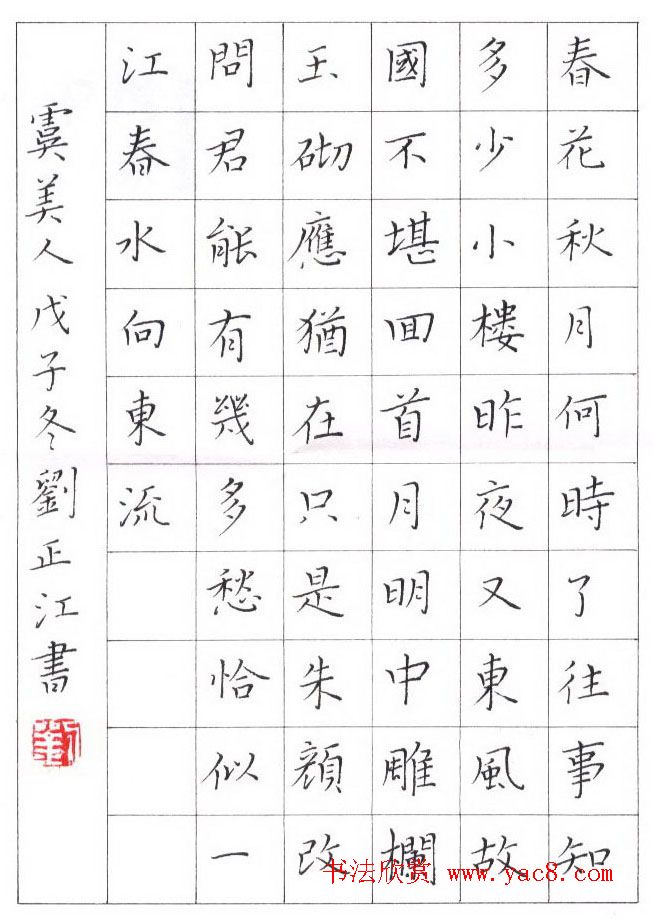 春花秋月何時了往事知
多少小樓昨夜又東風故
國不堪回首月明中雕欄
玉砌應猶在只是朱顔改
問君能有幾多愁恰似一
江春水向東流
虞美人戊子冬劉正江書
劉
书法欣赏 www.yac8.com